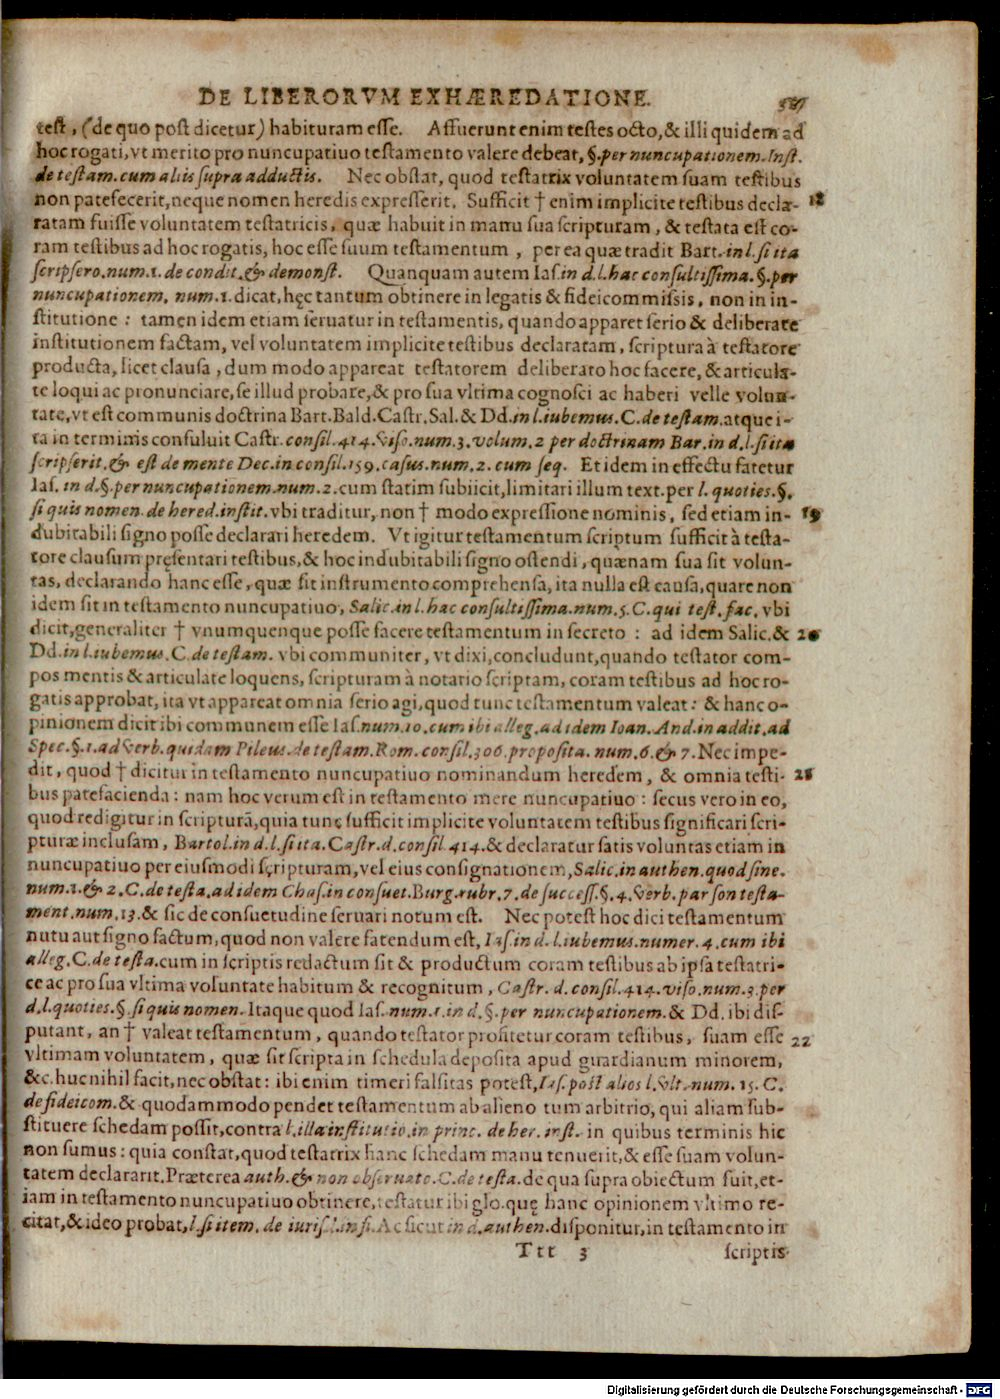 DE LIBERORVM EXHÆREDATIONE.
test, (de quo post dicetur) habituram esse. Affuerunt enim testes octo, & illi quidem ad
hoc rogati, vt merito pro nuncupatiuo testamento valere debeat, §. per nuncupationem. Inst.
de testam. cum aliis supra adductis. Nec obstat, quod testatrix voluntatem suam testibus
non patefecerit, neque nomen heredis expresserit. Sufficit † enim implicite testibus decla- 18
ratam fuisse voluntatem testatricis, quæ habuit in manu sua scripturam, & testata est co-
ram testibus ad hoc rogatis, hoc esse suum testamentum, per ea quæ tradit Bart. in l. si ita
scripsero. num. 1. de condit. & demonst. Quanquam autem Ias. in d. l. hac consultissima. §. per
nuncupationem. num. 1. dicat, hęc tantum obtinere in legatis & fideicommissis, non in in-
stitutione: tamen idem etiam seruatur in testamentis, quando apparet serio & deliberate
institutionem factam, vel voluntatem implicite testibus declaratam, scriptura à testatore
producta, licet clausa, dum modo appareat testatorem deliberato hoc facere, & articula-
te loqui ac pronunciare, se illud probare, & pro sua vltima cognosci ac haberi velle volun-
tate, vt est communis doctrina Bart. Bald. Castr. Sal. & Dd. in l. iubemus. C. de testam. atque i-
ta in terminis consuluit Castr. consil. 414. viso. num. 3. volum. 2 per doctrinam Bar. in d. l. si ita
scripserit. & est de mente Dec. in consil. 159. casus. num. 2. cum seq. Et idem in effectu fatetur
Ias. in d. §. per nuncupationem. num. 2. cum statim subiicit, limitari illum text. per l. quoties. §.
si quis nomen. de hered. instit. vbi traditur, non † modo expressione nominis, sed etiam in- 19
dubitabili signo posse declarari heredem. Vt igitur testamentum scriptum sufficit à testa-
tore clausum pręsentari testibus, & hoc indubitabili signo ostendi, quænam sua sit volun-
tas, declarando hanc esse, quæ sit instrumento comprehensa, ita nulla est causa, quare non
idem sit in testamento nuncupatiuo, Salic. in l. hac consultissima. num. 5. C. qui test. fac. vbi
dicit, generaliter † vnumquenque posse facere testamentum in secreto: ad idem Salic. & 20
Dd. in l. iubemus. C. de testam. vbi communiter, vt dixi, concludunt, quando testator com-
pos mentis & articulate loquens, scripturam à notario scriptam, coram testibus ad hoc ro-
gatis approbat, ita vt appareat omnia serio agi, quod tunc testamentum valeat: & hanc o-
pinionem dicit ibi communem esse Ias. num. 10. cum ibi alleg. ad idem Ioan. And. in addit. ad
Spec. §. 1. ad verb. quidam Pileus. de testam. Rom. consil. 306. proposita. num. 6. & 7. Nec impe-
dit, quod † dicitur in testamento nuncupatiuo nominandum heredem, & omnia testi- 21
bus patefacienda: nam hoc verum est in testamento mere nuncupatiuo: secus vero in eo,
quod redigitur in scripturā, quia tunc sufficit implicite voluntatem testibus significari scri-
pturæ inclusam, Bartol. in d. l. si ita. Castr. d. consil. 414. & declaratur satis voluntas etiam in
nuncupatiuo per eiusmodi scripturam, vel eius consignationem, Salic. in authen. quod sine.
num. 1. & 2. C. de testa. ad idem Chas. in consuet. Burg. rubr. 7. de success. §. 4. verb. par son testa-
ment. num. 13. & sic de consuetudine seruari notum est. Nec potest hoc dici testamentum
nutu aut signo factum, quod non valere fatendum est, Ias. in d. l. iubemus. numer. 4. cum ibi
alleg. C. de testa. cum in scriptis redactum sit & productum coram testibus ab ipsa testatri-
ce ac pro sua vltima voluntate habitum & recognitum, Castr. d. consil. 414. viso. num. 3. per
d. l. quoties. §. si quis nomen. Itaque quod Ias. num. 1. in d. §. per nuncupationem. & Dd. ibi dis-
putant, an † valeat testamentum, quando testator profitetur coram testibus, suam esse 22
vltimam voluntatem, quæ sit scripta in schedula deposita apud guardianum minorem,
&c. huc nihil facit, nec obstat: ibi enim timeri falsitas potest, Ias. post alios l. vlt. num. 15. C.
de fideicom. & quodammodo pendet testamentum ab alieno tum arbitrio, qui aliam sub-
stituere schedam possit, contra l. illa institutio. in princ. de her. inst. in quibus terminis hic
non sumus: quia constat, quod testatrix hanc schedam manu tenuerit, & esse suam volun-
tatem declararit. Præterea auth. & non obseruato. C. de testa. de qua supra obiectum fuit, et-
iam in testamento nuncupatiuo obtinere, testatur ibi glo. quę hanc opinionem vltimo re-
citat, & ideo probat, l. si item. de iuris l. in fi. Ac sicut in d. authen. disponitur, in testamento in
Ttt 3 scriptis
Digitalisierung gefördert durch die Deutsche Forschungsgemeinschaft - DFG